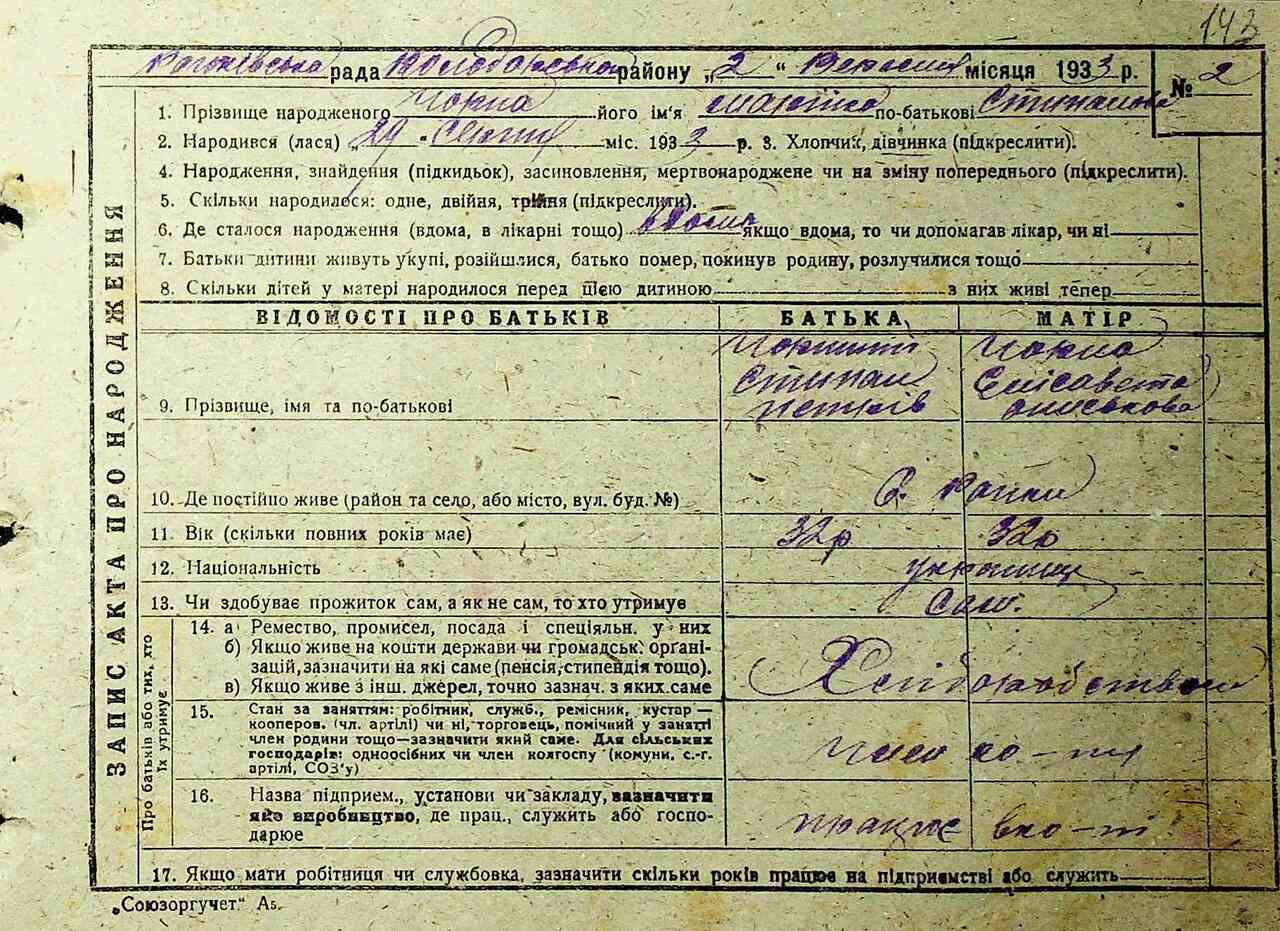 143
рада району „2" Вересня місяця 1933 р. № 2
1. Прізвище народженого його ім'я по-батькові
2. Народився (лася) „29" Серпня міс. 1933 р. 3. Хлопчик, дівчинка (підкреслити).
4. Народження, знайдення (підкидьок), засиновлення, мертвонароджене чи на зміну попереднього (підкреслити).
5. Скільки народилося: одне, двійня, трійня (підкреслити).
6. Де сталося народження (вдома, в лікарні тощо) вдома якщо вдома, то чи допомагав лікар, чи ні
7. Батьки дитини живуть укупі, розійшлися, батько помер, покинув родину, розлучилися тощо
8. Скільки дітей у матері народилося перед цією дитиною з них живі тепер
ЗАПИС АКТА ПРО НАРОДЖЕННЯ
ВІДОМОСТІ ПРО БАТЬКІВ БАТЬКА МАТІР
9. Прізвище, імя та по-батькові
Єлісавета
10. Де постійно живе (район та село, або місто, вул. буд. №) с.
11. Вік (скільки повних років має) 32р 32р
12. Національність українці
13. Чи здобуває прожиток сам, а як не сам, то хто утримує сам.
Про батьків або тих, хто їх утримує
14. а) Ремество, промисел, посада і спеціяльн. у них
б) Якщо живе на кошти держави чи громадськ. органі-
зацій, зазначити на які саме (пенсія, стипендія тощо).
в) Якщо живе з інш. джерел, точно зазнач. з яких саме
15. Стан за заняттям: робітник, служб., ремісник, кустар —
кооперов. (чл. артілі) чи ні, торговець, помічний у занятті
член родини тощо—зазначити який саме. Для сільських
господарів: одноосібних чи член колгоспу (комуни, с.-г.
артілі, СОЗ'у)
16. Назва підприєм., установи чи закладу, зазначити
яке виробництво, де прац., служить або госпо-
дарює
працює в ко-пі
17. Якщо мати робітниця чи службовка, зазначити скільки років працює на підприємстві або служить
„Союзоргучет." А5.